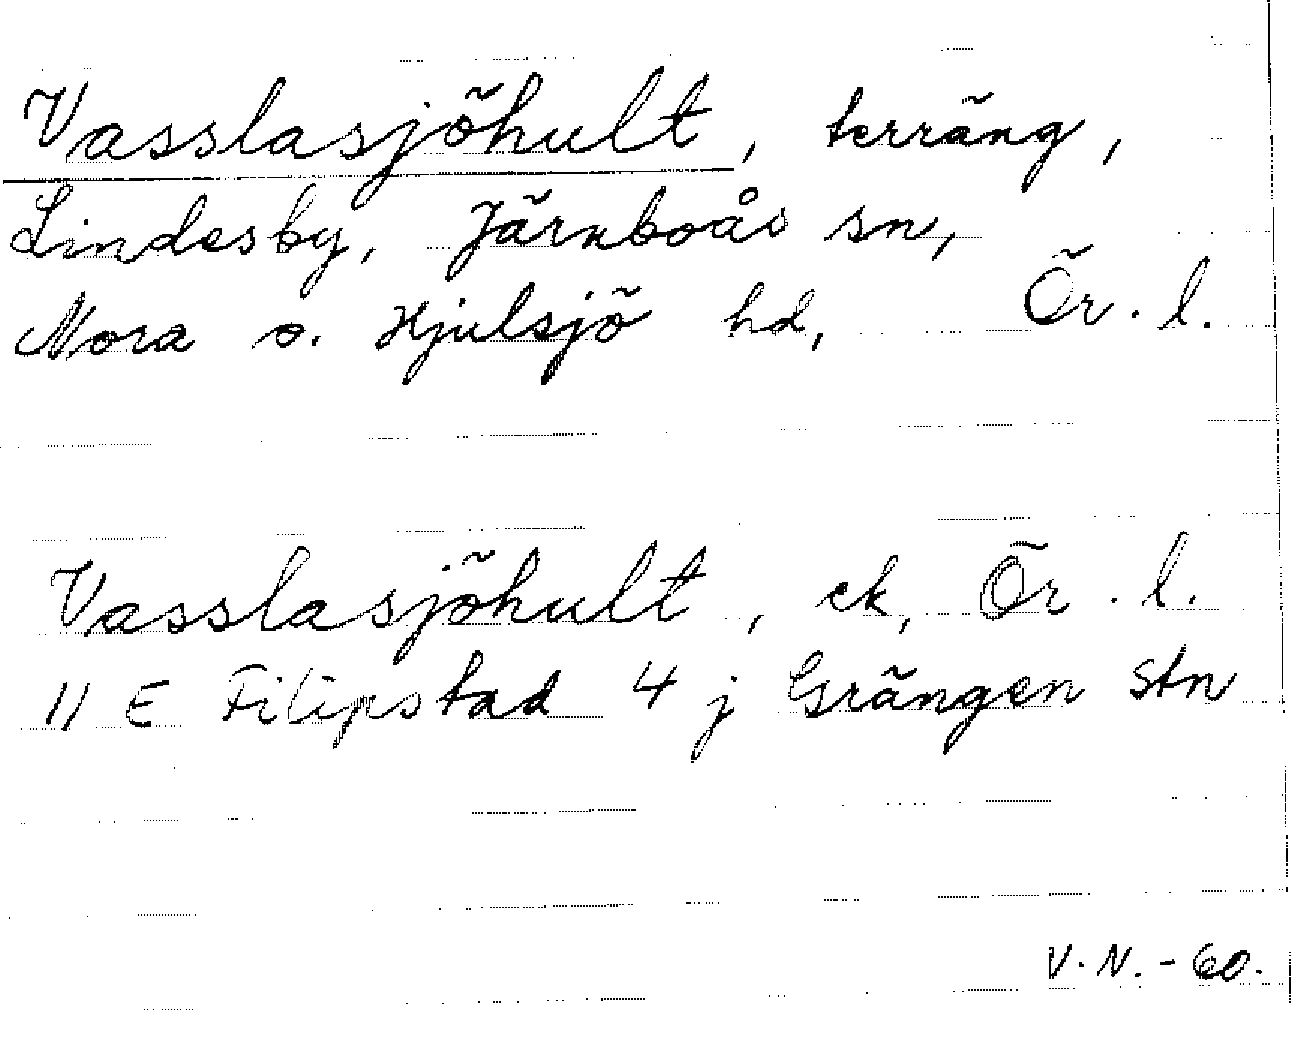 Vasslasjöhult, terräng,
Lindesby, Järnboås sn,
Nora o. Hjulsjö hd, Ör. l.
Vasslasjöhult, ek, Ör. l.
11 E Filipstad 4 j Grängen stn
V. N. - 60.